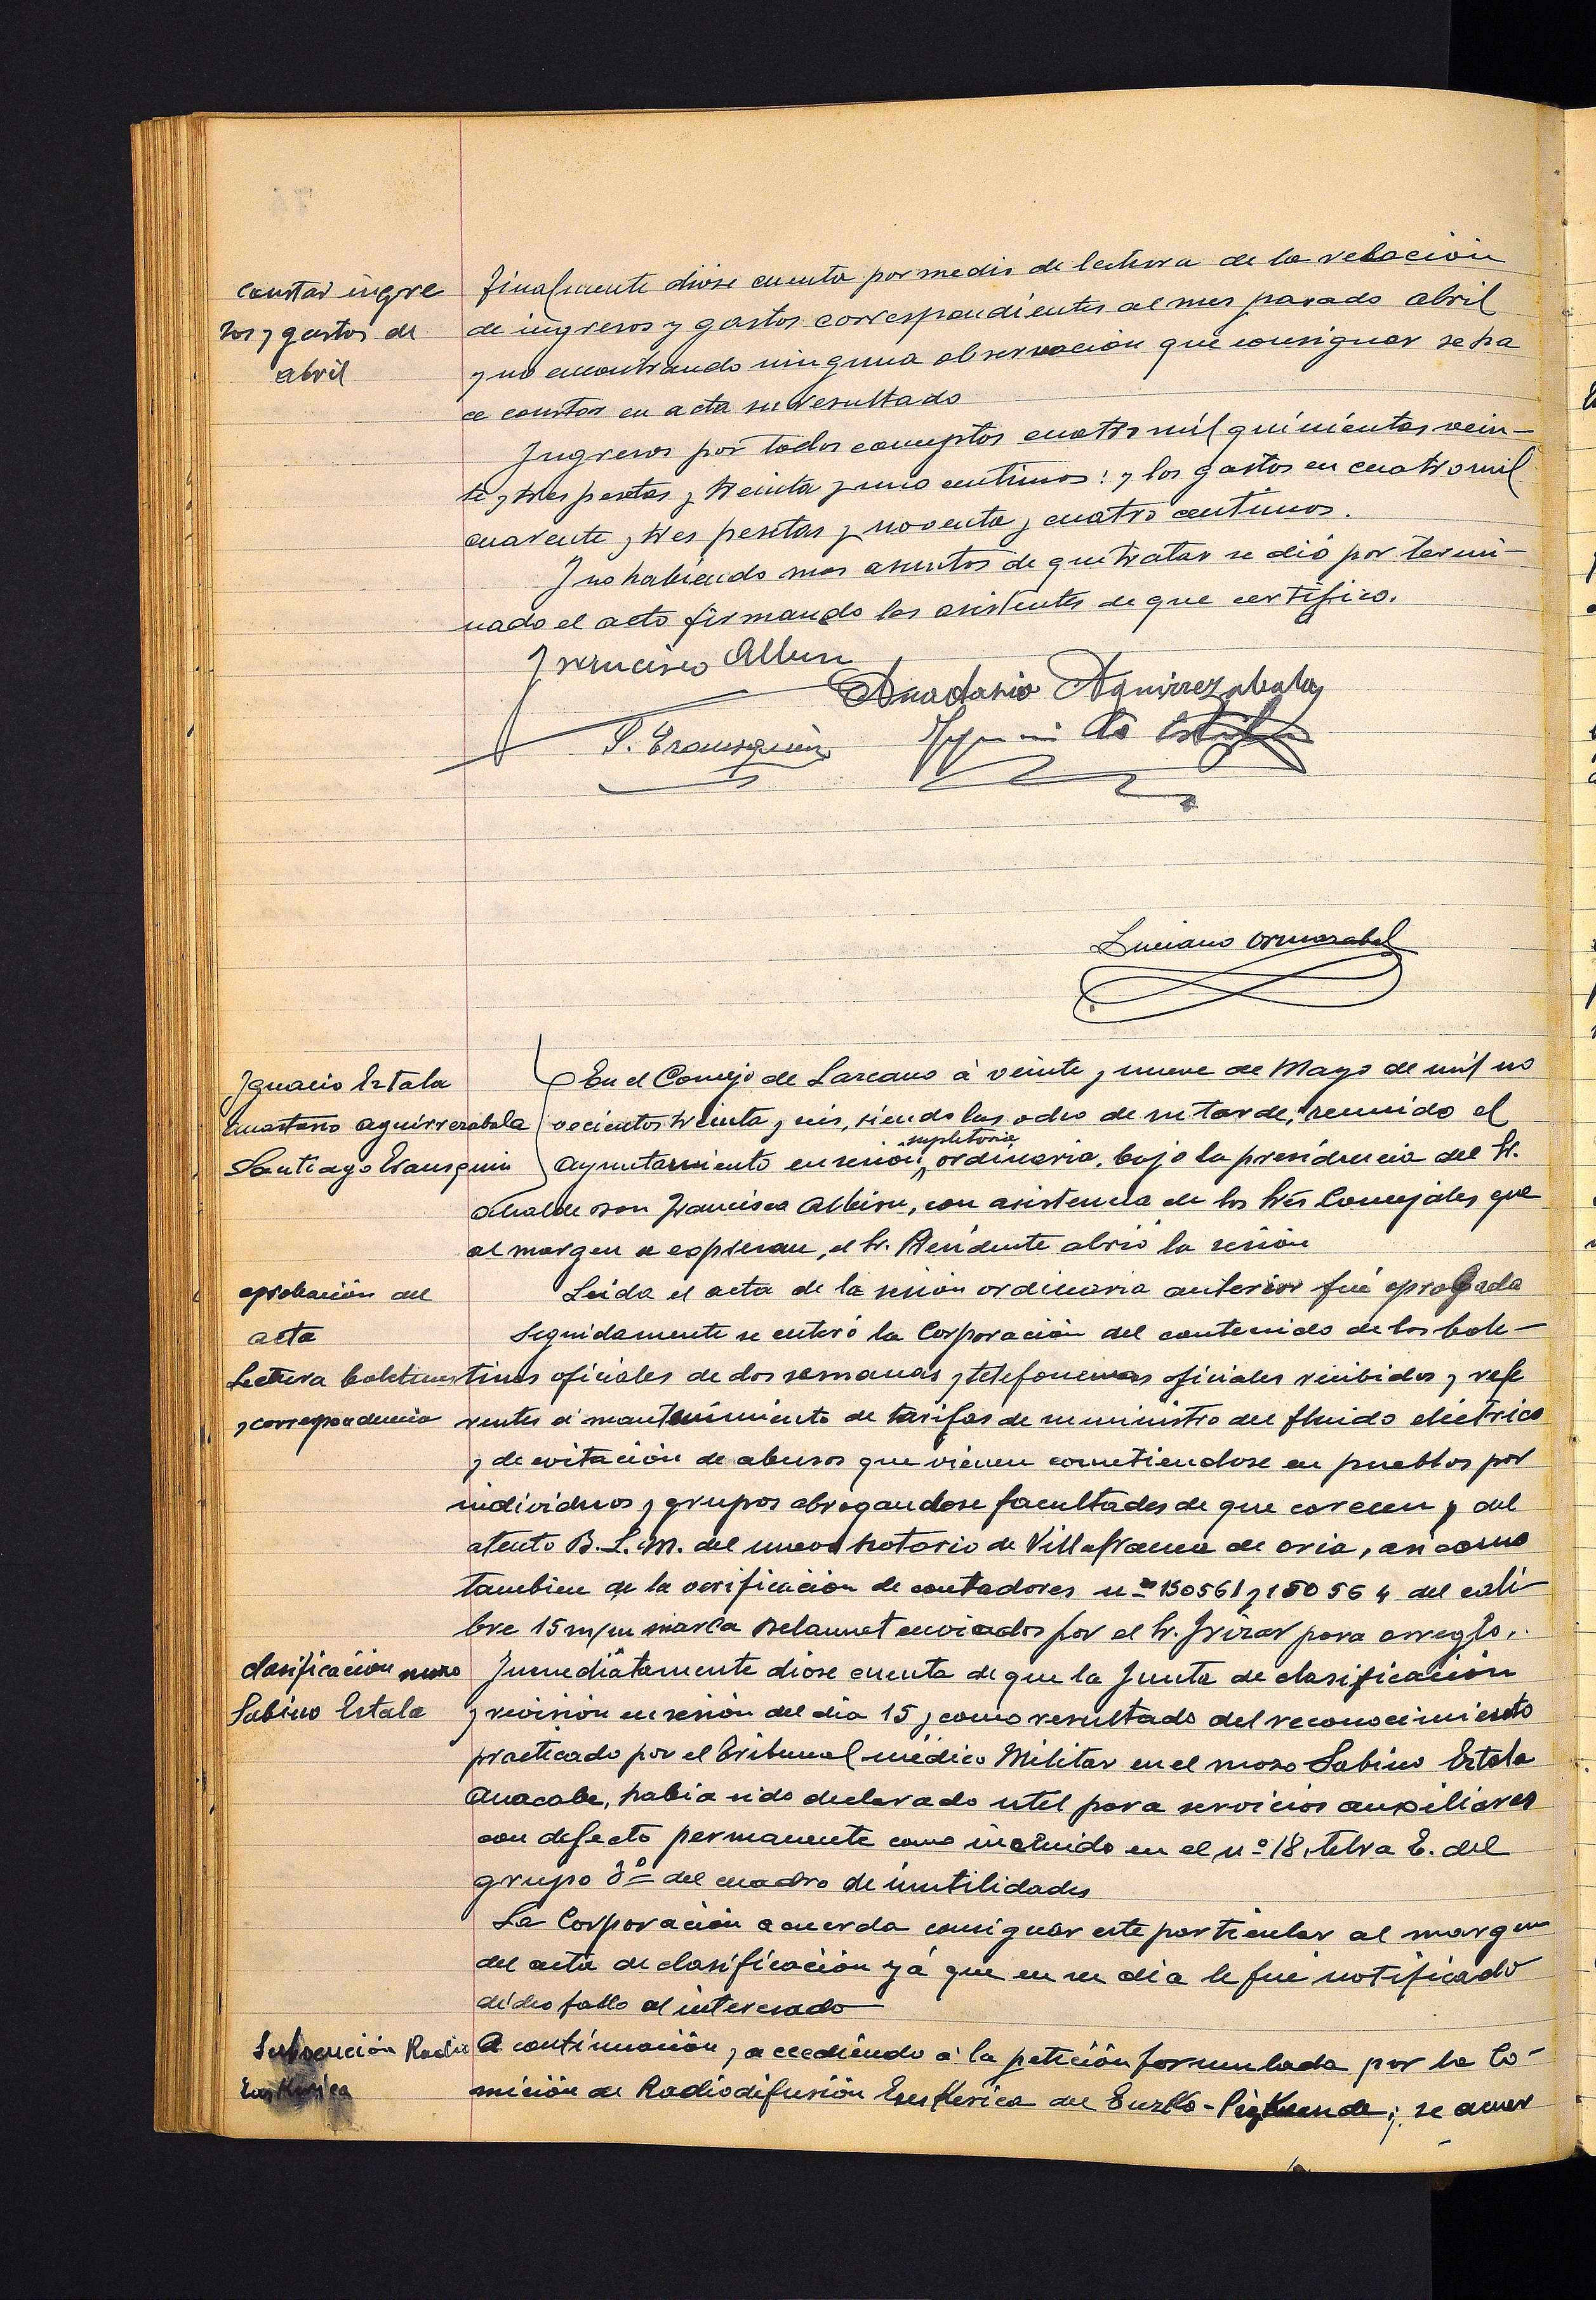 constar ingre
sos y gastos de
abril
Finalmente diose cuenta por medio de lectura de la relacion
de ingresos y gastos correspondientes al mes pasado abril
y no encontrando ninguna observacion que consignar se ha
ce constar en acta su resultado
Ingresos por todos conceptos cuatro mil quinientas vein-
te y tres pesetas y treinta y uno centimos: y los gastos en cuatro mil
cuarente y tres pesetas y noventa y cuatro centimos.
Y no habiendo mas asuntos de que tratar se dió por termi-
nado el acto firmando los asistentes de que certifico.
Francisco Albisu
Anastasio Aguirrezabala
S. Erausquin
Luciano Ormazabal
Ignacio Estala
Anastasio Aguirrezabala
Santiago Erausquin
En el Concejo de Lazcano á veinte y nueve de Mayo de mil no
vecientos treinta y seis, siendo las ocho de su tarde, reunido el
supletoria
Ayuntamiento en sesión ordinaria, bajo la presidencia del Sr.
Alcalde Don Francisco Albisu, con asistencia de los tres Concejales que
al margen se expresan, el Sr. Presidente abrió la sesión
aprobación del
acta
Leida el acta de la sesion ordinaria anterior fué aprobada
Lectura boletines
y correspondencia
Seguidamente se enteró la Corporación del contenido de los bole-
tines oficiales de dos semanas y telefonemas oficiales recibidos y refe
rentes á mantenimiento de tarifas de suministro del fluido eléctrico
y de evitación de abusos que vienen cometiendose en pueblos por
individuos y grupos abrogandose facultades de que carecen y del
atento B. L. M. del nuevo Notario de Villafranca de Oria, asi como
tambien de la verificacion de contadores nº 150561 y 150564 del cali-
bre 15 m/m marca Delaunet enviados por el Sr. Irizar para arreglo.
clasificación mozo
Sabino Estala
Inmediatamente diose cuenta de que la Junta de clasificación
y revision en sesion del dia 15 y como resultado del reconocimiento
practicado por el Tribunal médico Militar en el mozo Sabino Estala
Anacabe, habia sido declarado util para servicios auxiliares
con defecto permanente como incluido en el nº 18, letra E. del
grupo 3º del cuadro de inutilidades
La Corporación acuerda consignar este particular al margen
del acta de clasificación yá que en su dia le fué notificado
dicho fallo al interesado
Subvención Radio
Euskerica
A continuación, accediendo á la petición formulada por la Co-
misión de Radiodifusión Euskerica de Euzko-Pizkunda; se acuer